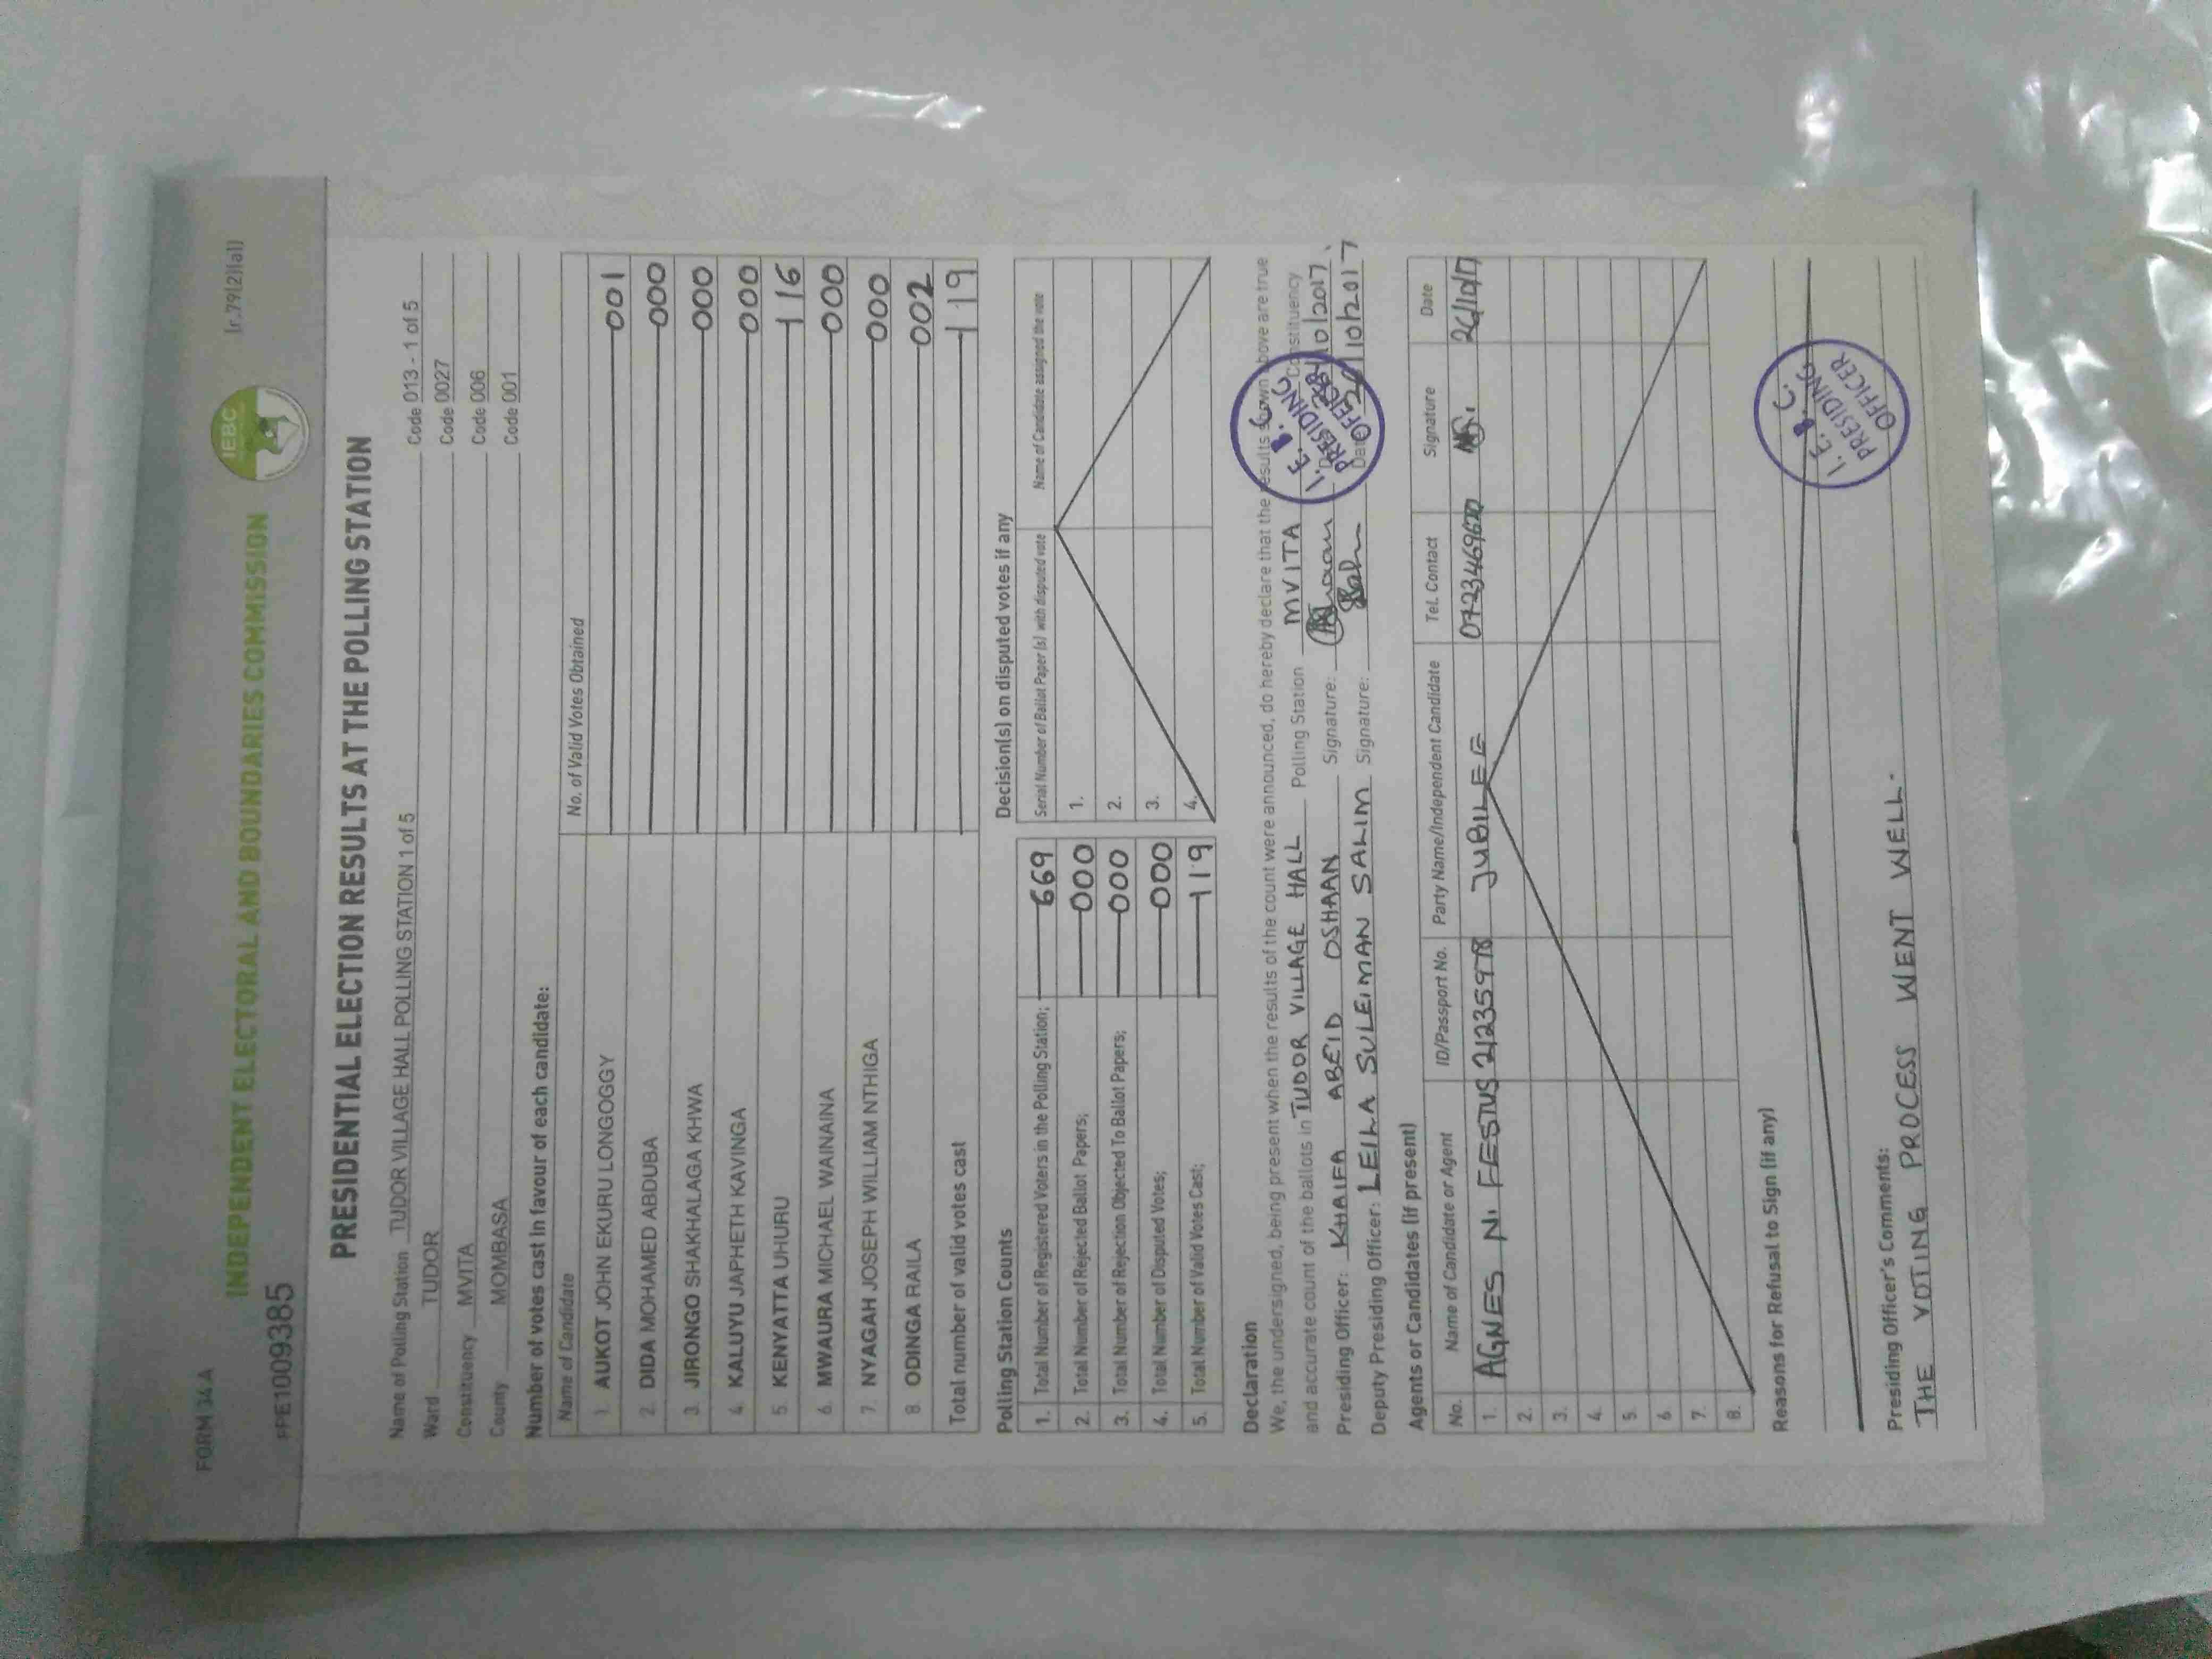 FORM 34A
(r.79(2)(a))
INDEPENDENT ELECTORAL AND BOUNDARIES COMMISSION
IEBC
PRESIDENTIAL ELECTION RESULTS AT THE POLLING STATION
Name of Polling Station TUDOR VILLAGE HALL POLLING STATION 1 of 5 Code 013 - 1 of 5
Ward TUDOR Code 0027
Constituency MVITA Code 006
County MOMBASA Code 001
Number of votes cast in favour of each candidate:
Name of Candidate No. of Valid Votes Obtained
1. AUKOT JOHN EKURU LONGOGGY 001
2. DIDA MOHAMED ABDUBA 000
3. JIRONGO SHAKHALAGA KHWA 000
4. KALUYU JAPHETH KAVINGA 000
5. KENYATTA UHURU 116
6. MWAURA MICHAEL WAINAINA 000
7. NYAGAH JOSEPH WILLIAM NTHIGA 000
8. ODINGA RAILA 002
Total number of valid votes cast 119
Polling Station Counts
1. Total Number of Registered Voters in the Polling Station; 669
2. Total Number of Rejected Ballot Papers; 000
3. Total Number of Rejection Objected To Ballot Papers; 000
4. Total Number of Disputed Votes; 000
5. Total Number of Valid Votes Cast; 119
Decision(s) on disputed votes if any
Serial Number of Ballot Paper (s) with disputed vote Name of Candidate assigned the vote
1.
2.
3.
4.
Declaration
We, the undersigned, being present when the results of the count were announced, do hereby declare that the results shown above are true
and accurate count of the ballots in TUDOR VILLAGE HALL Polling Station MVITA Constituency
Presiding Officer: KHAIFA ABEID OSHAAN Signature: 10/2017
Deputy Presiding Officer: LEILA SULEIMAN SALIM Signature: Date 10/2017
I. E. B. C. PRESIDING OFFICER
Agents or Candidates (if present)
No. Name of Candidate or Agent ID/Passport No. Party Name/Independent Candidate Tel. Contact Signature Date
1. AGNES N. FESTUS JUBILEE 26/10/17
2.
3.
4.
5.
6.
7.
8.
Reasons for Refusal to Sign (if any)
I. E. B. C. PRESIDING OFFICER
Presiding Officer's Comments:
THE VOTING PROCESS WENT WELL.